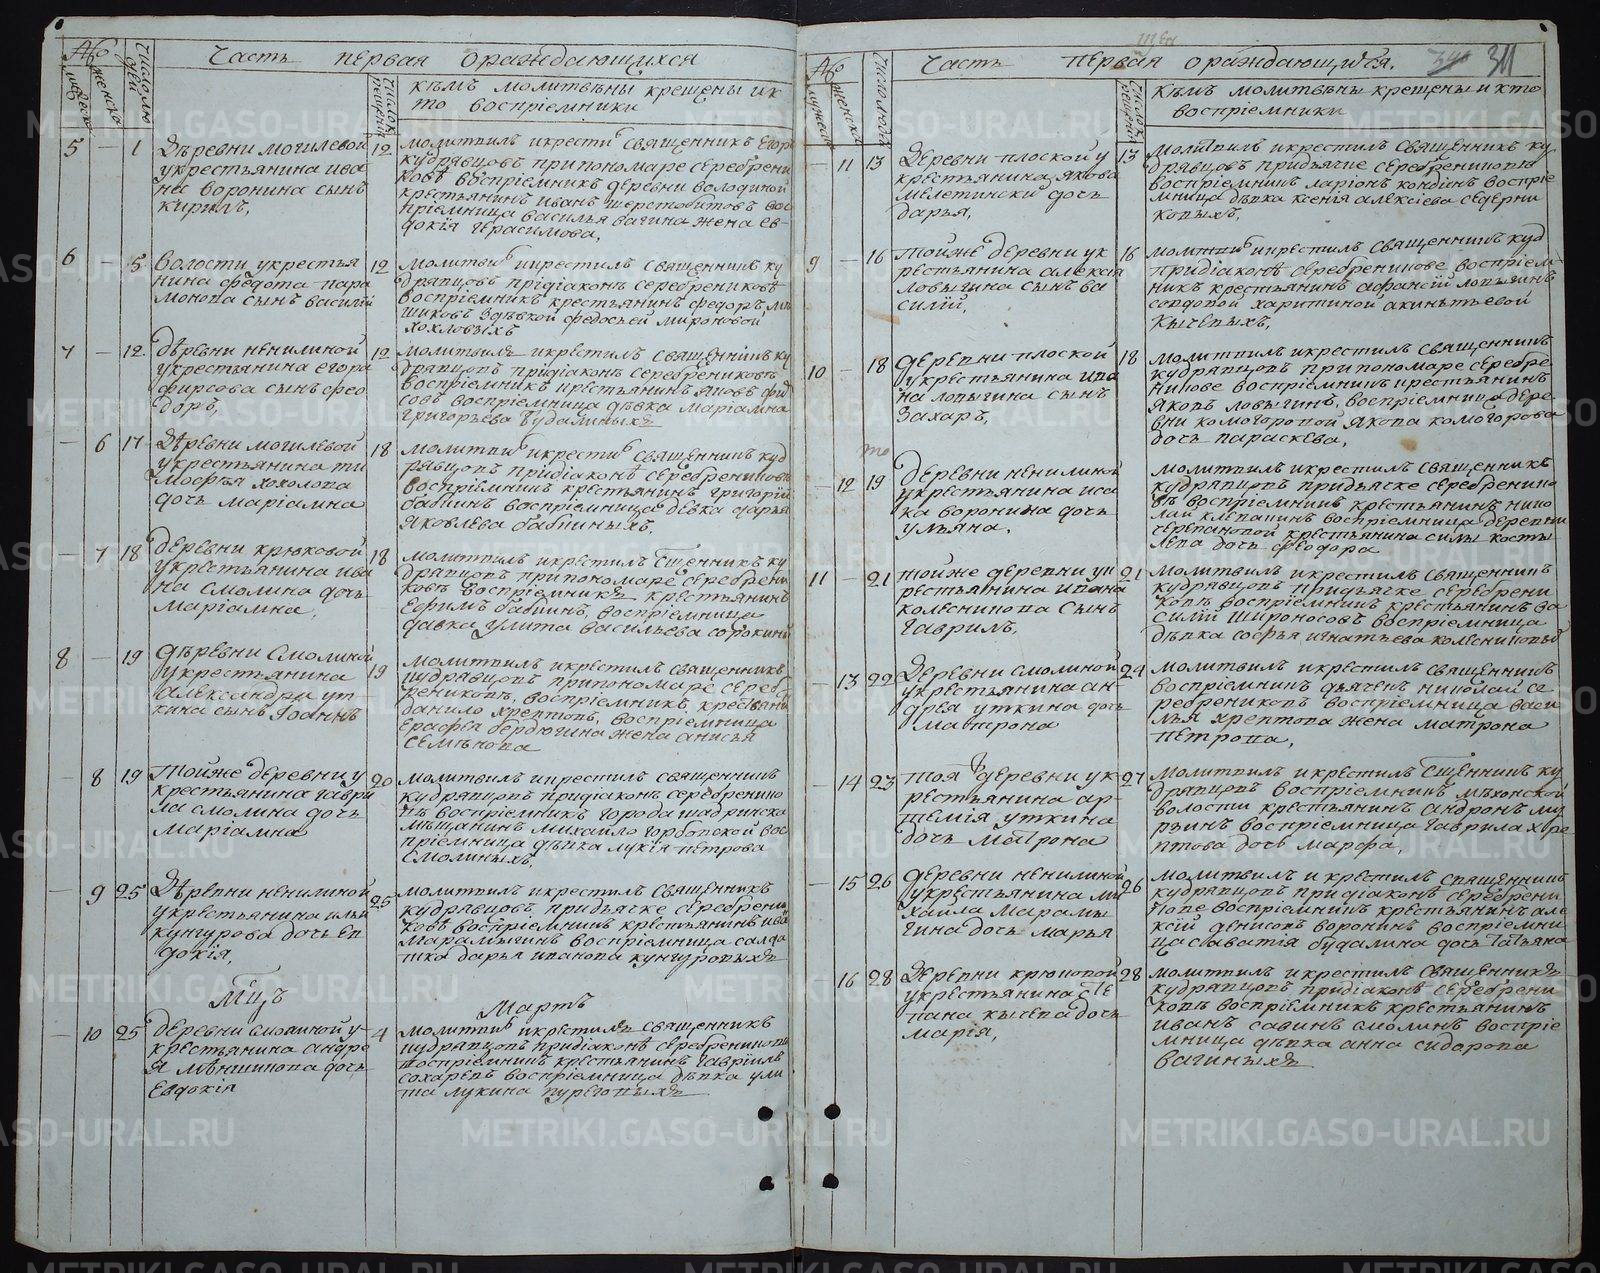 Часть первая о раждающихся
числомъ дни
женска
къмъ молитвѣны крещены и к
то воспрiемники
5 — 1
Дѣревни могилевой
укрестьянина ива
на воронина сынъ
кирилъ,
12
молитвилъ икрести священникъ Егоръ
кудрявцовъ припономаре серебрени
ковѣ воспрiемникъ деревни володиной
крестьянинъ иванъ шерстобитовъ вос
прiемница василья вагина жена ев-
докiя герасимова,
6 — 5
волости укрестья
нина федота пара
монова сынъ василiй
12
молитви икрестилъ священникъ ку
дрявцовъ придiаконѣ серебрениковѣ
воспрiемникъ крестьянинъ федоръ
здѣвкой федосьей мироновой
хохловыхъ
7 — 12
дѣревни ненилиной
укрестьянина егора
фирсова сынъ фео
доръ,
12
молитвилъ икрестилъ священникъ ку
дрявцовъ придiаконѣ серебрениковѣ
воспрiемникъ крестьянинъ яковъ фир
совъ воспрiемница дѣвка марiамна
григорьева будалиныхъ
— 6 17
Дѣревни могилевой
укрестьянина ти
мофѣя хохлова
дочь марiамна
18
молитви икрести священникъ куд
рявцовъ придiаконѣ серебрениковѣ
воспрiемникъ крестьянинъ григорiй
бабинъ воспрiемница девка дарья
яковлева бабиныхъ,
— 7 18
деревни крюковой
укрестьянина ива
на смолина дочь
марiамна,
18
молитвилъ икрестилъ сщенникъ ку
дрявцовъ припономаре серебрени
ковѣ воспрiемникъ крестьянинъ
Ефимъ бабинъ, воспрiемница
девка улита васильева сорокины
8 — 19
дѣревни смолиной
укрестьянина
александра ут-
кина сынъ Iоаннъ
19
молитвилъ икрестилъ священникъ
кудрявцовъ припономаре сереб
рениковѣ, воспрiемникъ крестьяни
данило хрептовъ, воспрiемница
ерафея бердюгина жена анисья
семѣнова
— 8 19
Тойже деревни у
крестьянина гаври
ла смолина дочь
марiамна
20
молитвилъ икрестилъ священникъ
кудрявцовъ придiаконѣ серебренико
въ воспрiемникъ города шадринска
мѣщанинъ михаило горбовской вос
прiемница дѣвка лукiя петрова
Смолиныхъ,
— 9 25
Дѣревни ненилиной
укрестьянина ильи
кунгурова дочь ев
докiя,
25
молитвилъ икрестилъ священникъ
кудрявцовъ придьячке серебрени
ковѣ воспрiемникъ крестьянинъ ива
марамыгинъ воспрiемница салда
тка дарья иванова кунгуровыхъ
Мцъ Мартъ
— 10 25
деревни смолиной у-
крестьянина андре
я мѣншикова дочь
Евдокiя
4
молитви икрестилъ священникъ
кудрявцовъ придiаконѣ серебрениковѣ
воспрiемникъ крестьянинъ гаврiилъ
сохаревъ воспрiемница дѣвка ули
та лукина пуреговыхъ
Часть первая о раждающихся.
311
къмъ молитвѣны крещены и кто
воспрiемники
— 11 13
Деревни плоской у
крестьянина якова
мелетински дочь
дарья,
13
молитвилъ икрестилъ священникъ ку
дрявцовъ придьячке серебреникове
воспрiемникъ ларiонъ кондинъ воспрiе
мница дѣвка ксенiя алексiева седерни
ковыхъ,
9 — 16
тойже деревни ук
рестьянина алексiя
ловыгина сынъ ва
силiй,
16
молитви икрестилъ священникъ куд
придiаконѣ серебреникове воспрiем
никъ крестьянинъ афансiй ловыгинъ
совдовой харитиной акиньтьевой
кычевыхъ,
10 — 18
деревни плоской
укрестьянина ива
на ловыгина сынъ
захаръ,
18
молитвилъ икрестилъ священникъ
кудрявцовъ припономаре серебре
никове воспрiемникъ крестьянинъ
яковъ ловыгинъ, воспрiемница дере
вни комогоровой якова комогорова
дочь параскева,
— 12 19
деревни ненилиной
укрестьянина иса
ка воронина дочь
ульяна,
молитвилъ икрестилъ священникъ
кудрявцовъ придьячке серебренико
въ воспрiемникъ крестьянинъ нико
лай клепининъ воспрiемница деревни
черепановой крестьянина силы косты
лева дочь феодора
11 — 21
тойже деревни ук
рестьянина ивана
колесникова сынъ
гаврилъ,
21
молитвилъ икрестилъ священникъ
кудрявцовъ придьячке серебрени
ковѣ воспрiемникъ крестьянинъ ва
силiй широносовъ воспрiемница
дѣвка софья игнатьева колесниковы
— 13 22
деревни смолиной
укрестьянина ан-
дрея уткина дочь
матрона
24
молитвилъ икрестилъ священникъ
воспрiемникъ дьячекъ николай се
ребрениковъ воспрiемница васи
лья хрептова жена матрона
петрова,
— 14 23
тоя деревни ук-
рестьянина ар-
темiя уткина
дочь матрона
27
молитвилъ икрестилъ сщенникъ ку
дрявцовъ воспрiемникъ мѣхонской
волости крестьянинъ андронъ му
рзинъ воспрiемница гаврила хре
птова дочь марфа,
— 15 26
деревни ненилиной
укрестьянина ми
хаила марамы
гина дочь марья
26
молитвилъ и крестилъ священникъ
кудрявцовъ придiаконѣ серебрени
кове воспрiемникъ крестьянинъ але
ксiй денисовъ воронинъ воспрiемни
ца саватiя будалина дочь татьяна
16 28
Деревни крюковой
укрестьянина сте
пана кычева дочь
марiя,
28
молитвилъ икрестилъ священникъ
кудрявцовъ придiаконѣ серебрени
ковѣ воспрiемникъ крестьянинъ
иванъ савинъ смолинъ воспрiе
мница дѣвка анна сидорова
вагиныхъ
METRIKI.GASO-URAL.RU